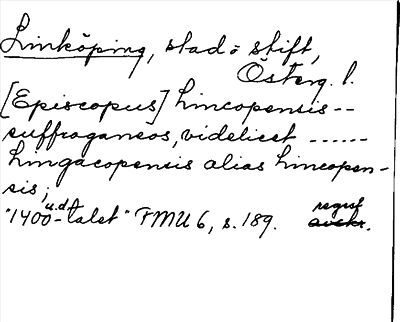 Linköping, stad o stift,
Österg. l.
[Episcopus] Lincopensis --
suffraganeos, videlicet ------
Lingacopensis alias Lincopen-
sis;
"1400-talet" u.d. FMU 6, s. 189. regest
avskr.